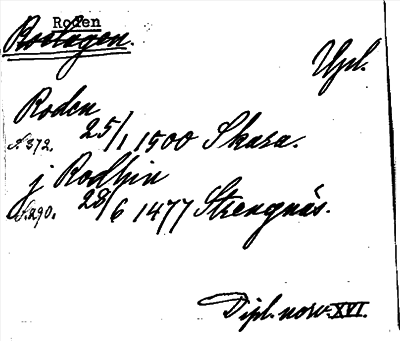 Roden
Roslagen.
Upl.
Roden
N. 372. 25/1 1500 Skara.
j Rodhin
N. 290. 28/6 1477 Strengnäs.
Dipl. norv. XVI.